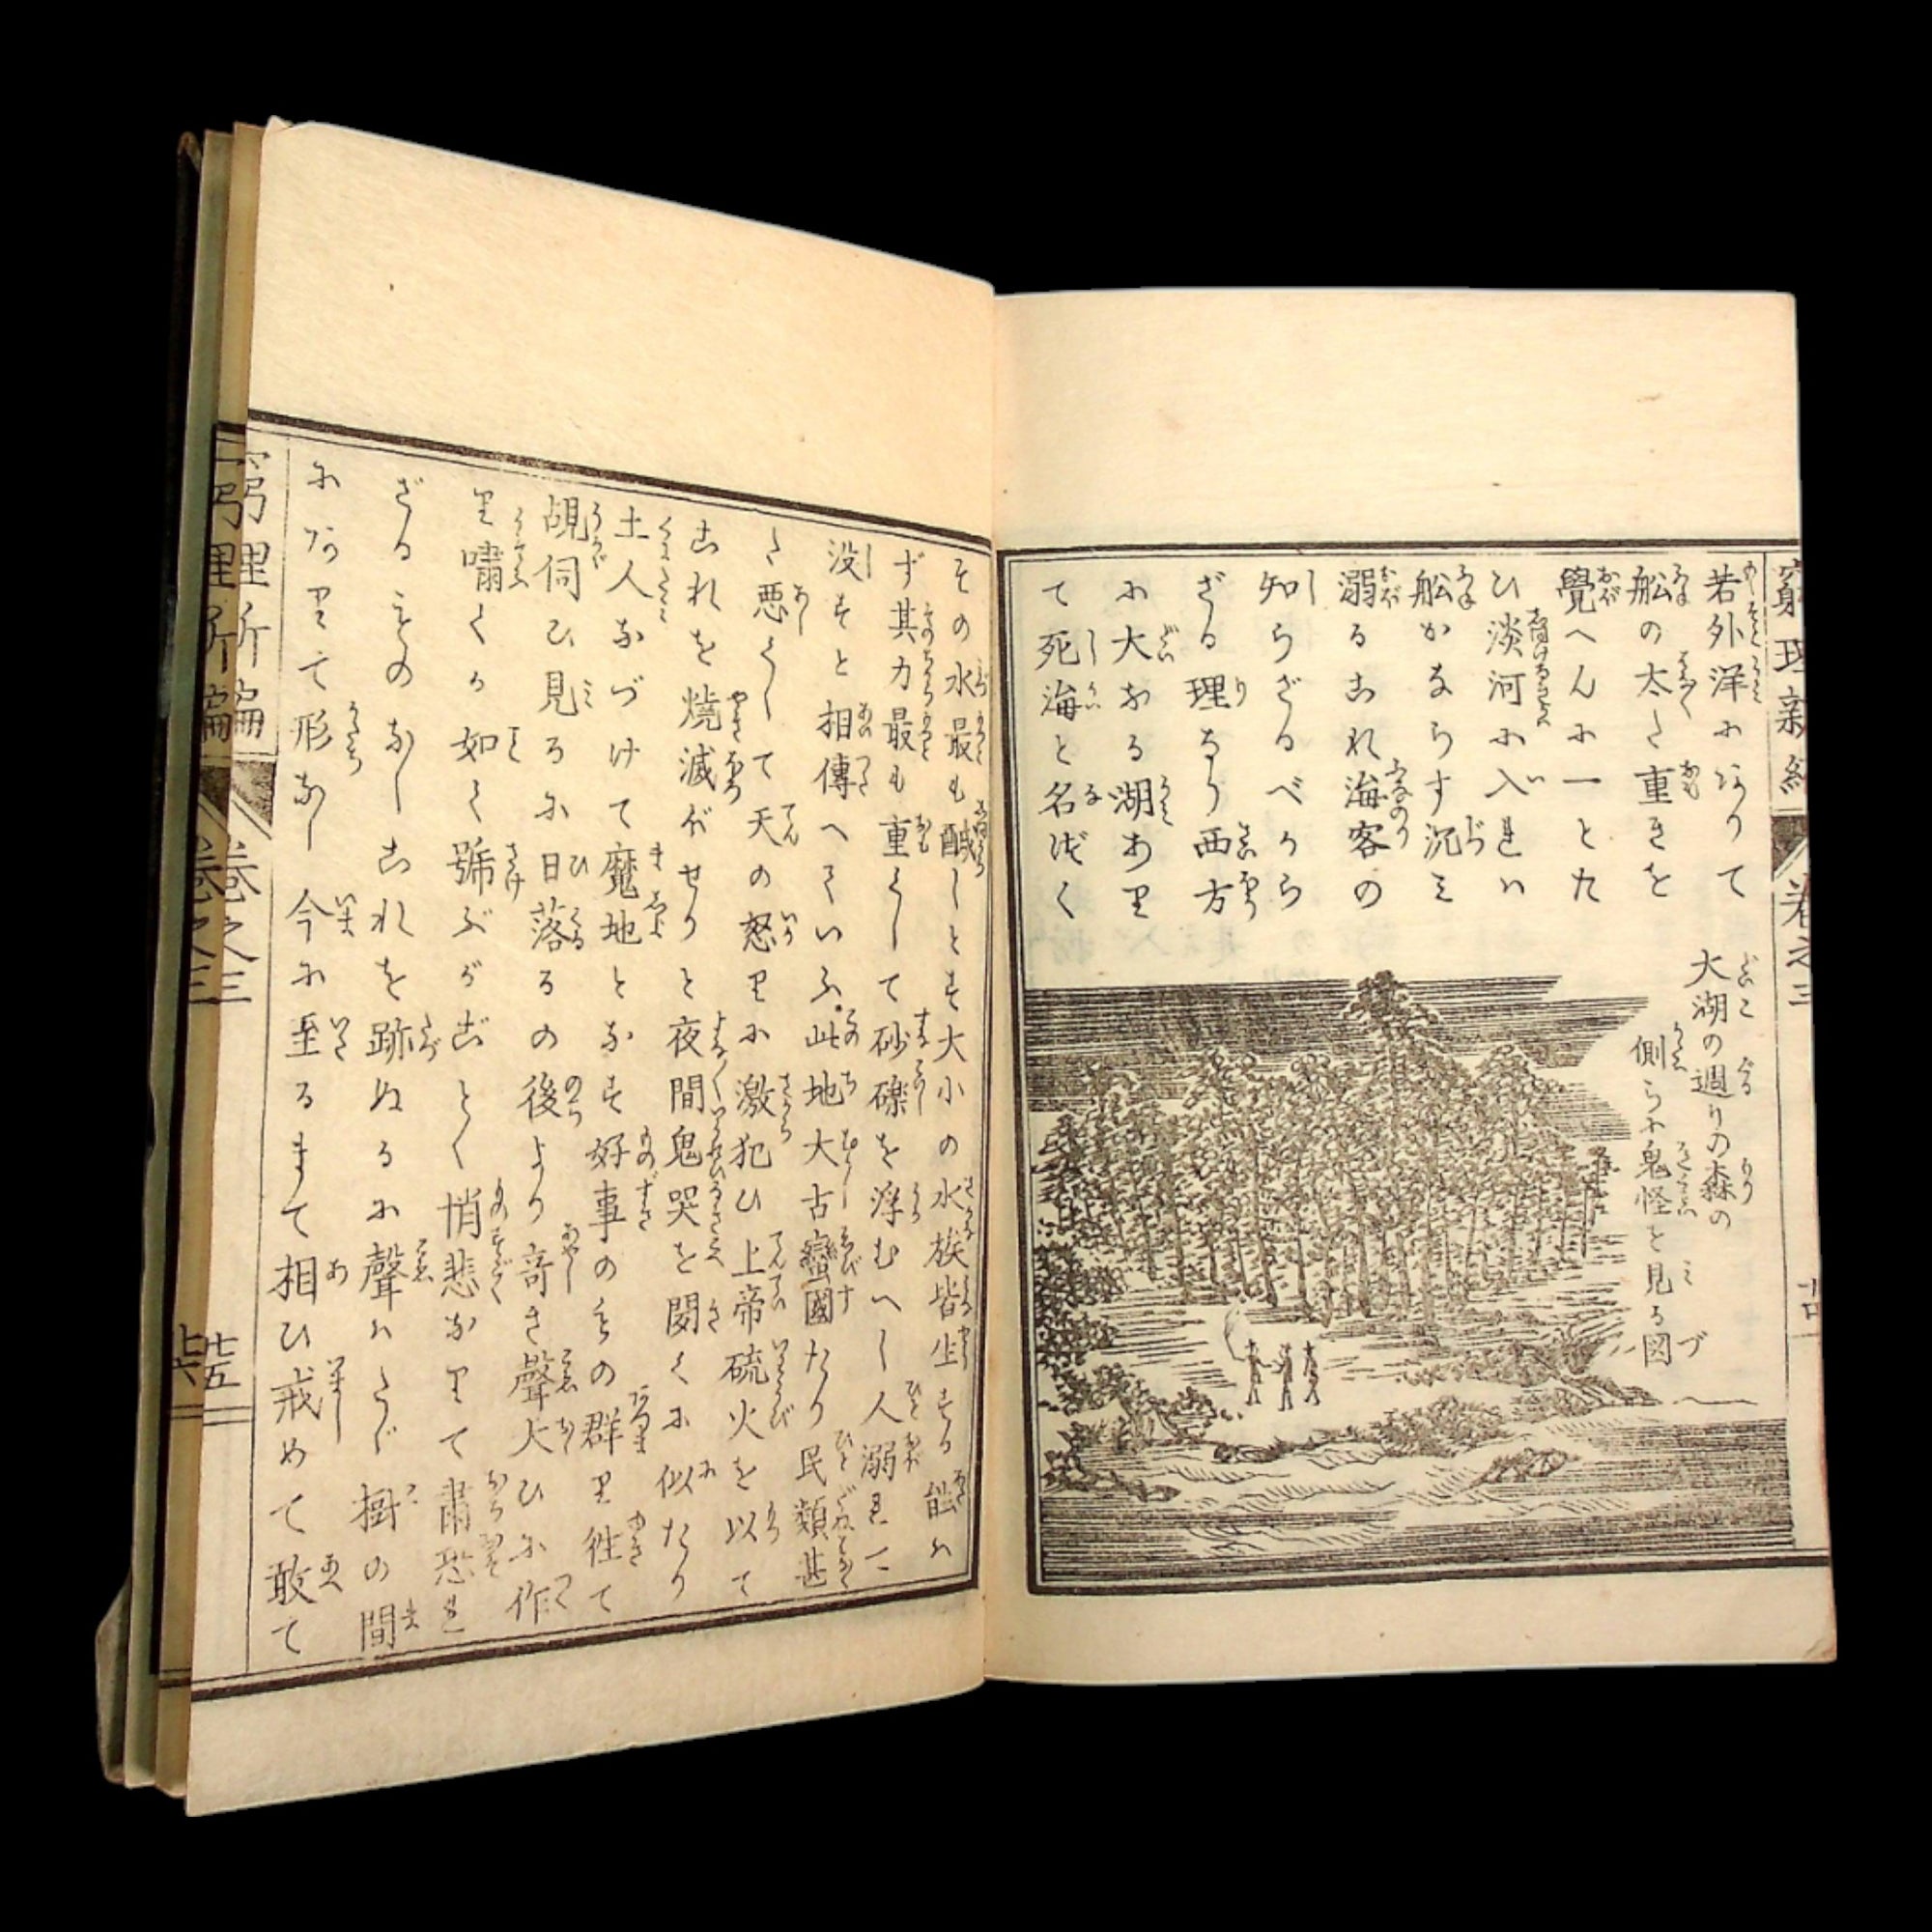 窮理新編 卷之三 十四
若外洋にありて
舩の太く重きを
覺へんに一とた
ひ淡河に入れハ
舩かならす沉ミ
溺るこれ海客の
知らざるべから
ざる理なり西方
に大なる湖あり
て死海と名づく
大湖の週りの森の
側らに鬼怪を見る図
その水最も醎しとす大小の水族皆生する能ハ
ず其力最も重くして砂礫を浮むへし人溺れて
没すと相傳へていふ此地大古蠻國たり民類甚
く悪くして天の怒りに激犯ひ上帝硫火を以て
これを燒滅ボせりと夜間鬼哭を聞くに似たり
土人なづけて魔地となす好事のもの群り徃て
覘伺ひ見るに日落るの後より奇き聲大ひに作
り嘯くか如く號ぶがごとく悄悲なりて肅恐れ
ざるものなしこれを跡ぬるに聲ハたゞ樹の間
にありて形なし今に至るまて相ひ戒めて敢て
窮理新編 卷之三 十五